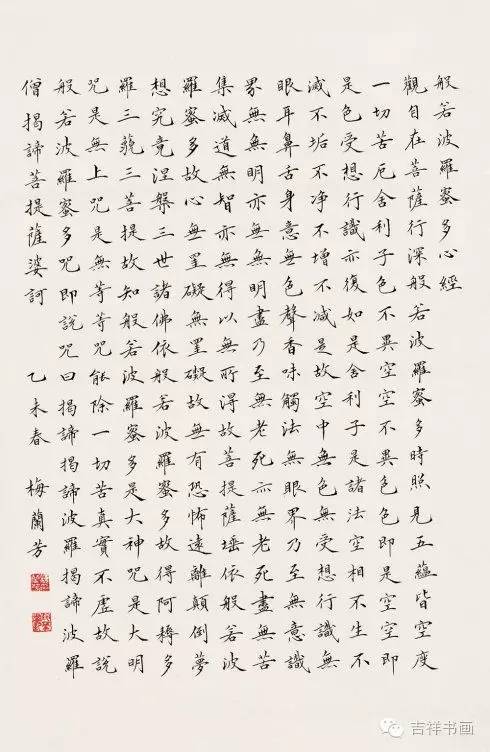 般若波羅蜜多心經
觀自在菩薩行深般若波羅蜜多時照見五蘊皆空度
一切苦厄舍利子色不異空空不異色色即是空空即
是色受想行識亦復如是舍利子是諸法空相不生不
滅不垢不净不增不减是故空中無色無受想行識無
眼耳鼻舌身意無色聲香味觸法無眼界乃至無意識
界無無明亦無無明盡乃至無老死亦無老死盡無苦
集滅道無智亦無得以無所得故菩提薩埵依般若波
羅蜜多故心無罣礙無罣礙故無有恐怖遠離顛倒夢
想究竟涅槃三世諸佛依般若波羅蜜多故得阿耨多
羅三藐三菩提故知般若波羅蜜多是大神咒是大明
咒是無上咒是無等等咒能除一切苦真實不虛故說
般若波羅蜜多咒即說咒曰揭諦揭諦波羅揭諦波羅
僧揭諦菩提薩婆訶 乙未春 梅蘭芳
吉祥书画